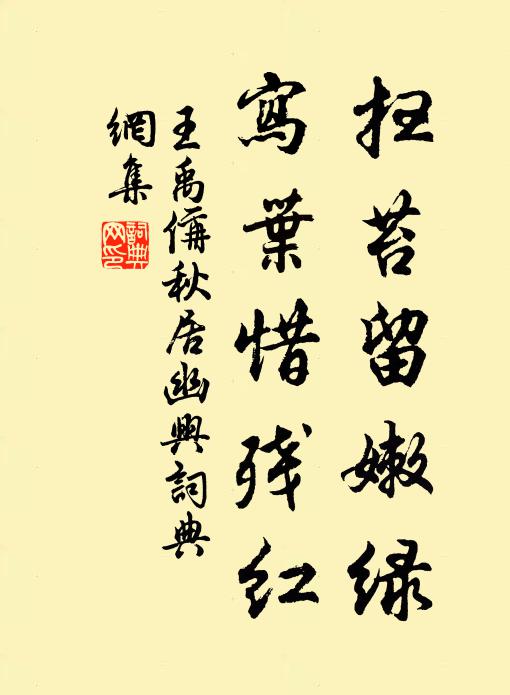 扫苔留嫩绿
寫葉惜残红
王禹偁秋居幽興詞典
網集
詞典
网印